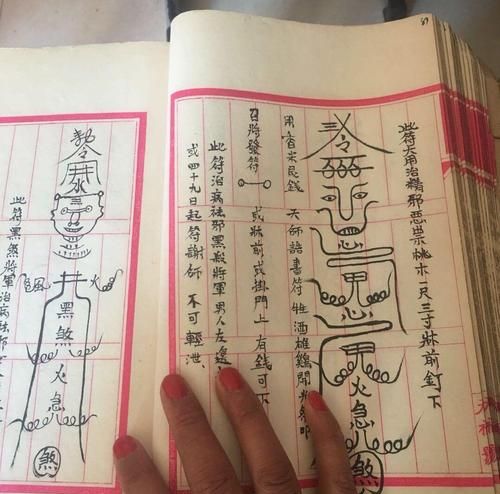 此符大用治精邪惡祟桃木一尺三寸牀前釘下
令
鬼
火急
煞
用香米艮錢 天師語書符 牲酒雄鷄開
召將發符 或牀前或掛門上 有錢可下
此符治病祛邪黑煞將軍男人左邊
或四十九日起符謝師 不可輕泄、
勅令
井
火
風
黑煞
火急
煞
此符黑煞將軍治病祛邪